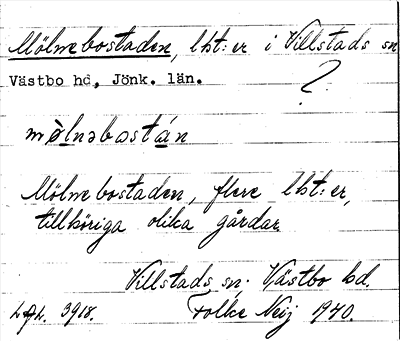 Mölnebostaden, lht:er i Villstads sn
Västbo hd, Jönk. län.
?
mö̀lnəbostán
Mölnebostaden, flere lht:er,
tillhöriga olika gårdar
Villstads sn. Västbo hd.
3918. Folke Neij 1940.